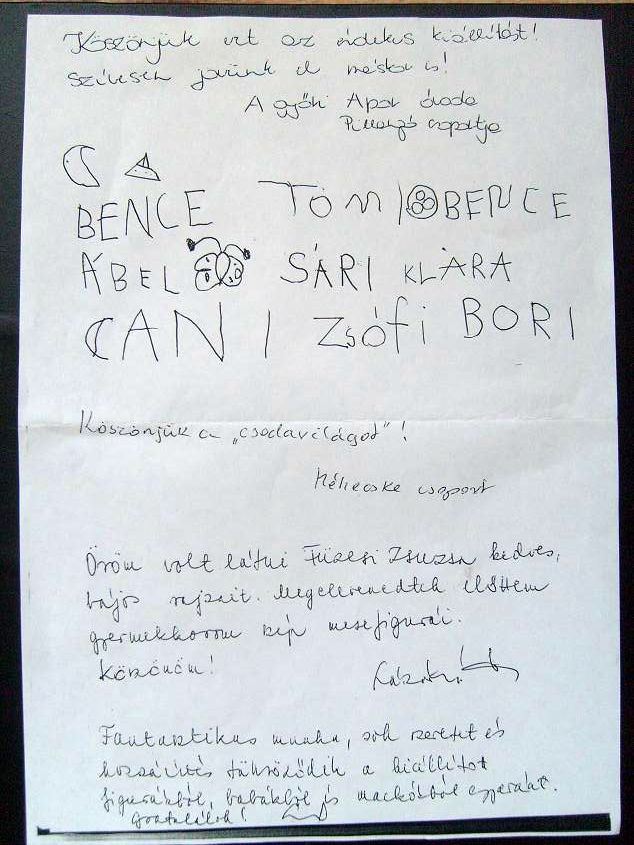 Köszönjük ezt az érdekes kiállítást!
Szívesen jövünk el máskor is!
A győri Apor óvoda
Pillangó csoportja
BENCE TOMI BENCE
ÁBEL SÁRI KLÁRA
CANI Zsófi BORI
Köszönjük a „csodavilágot”!
Méhecske csoport
Öröm volt látni Füzesi Zsuzsa kedves,
bájos rajzait. Megelevenedtek előttem
gyermekkorom szép mesefigurái.
Köszönöm!
Fantasztikus munka, sok szeretet és
hozzáértés tükröződik a kiállított
figurákból, babákból és mackókból egyaránt.
Gratulálok!